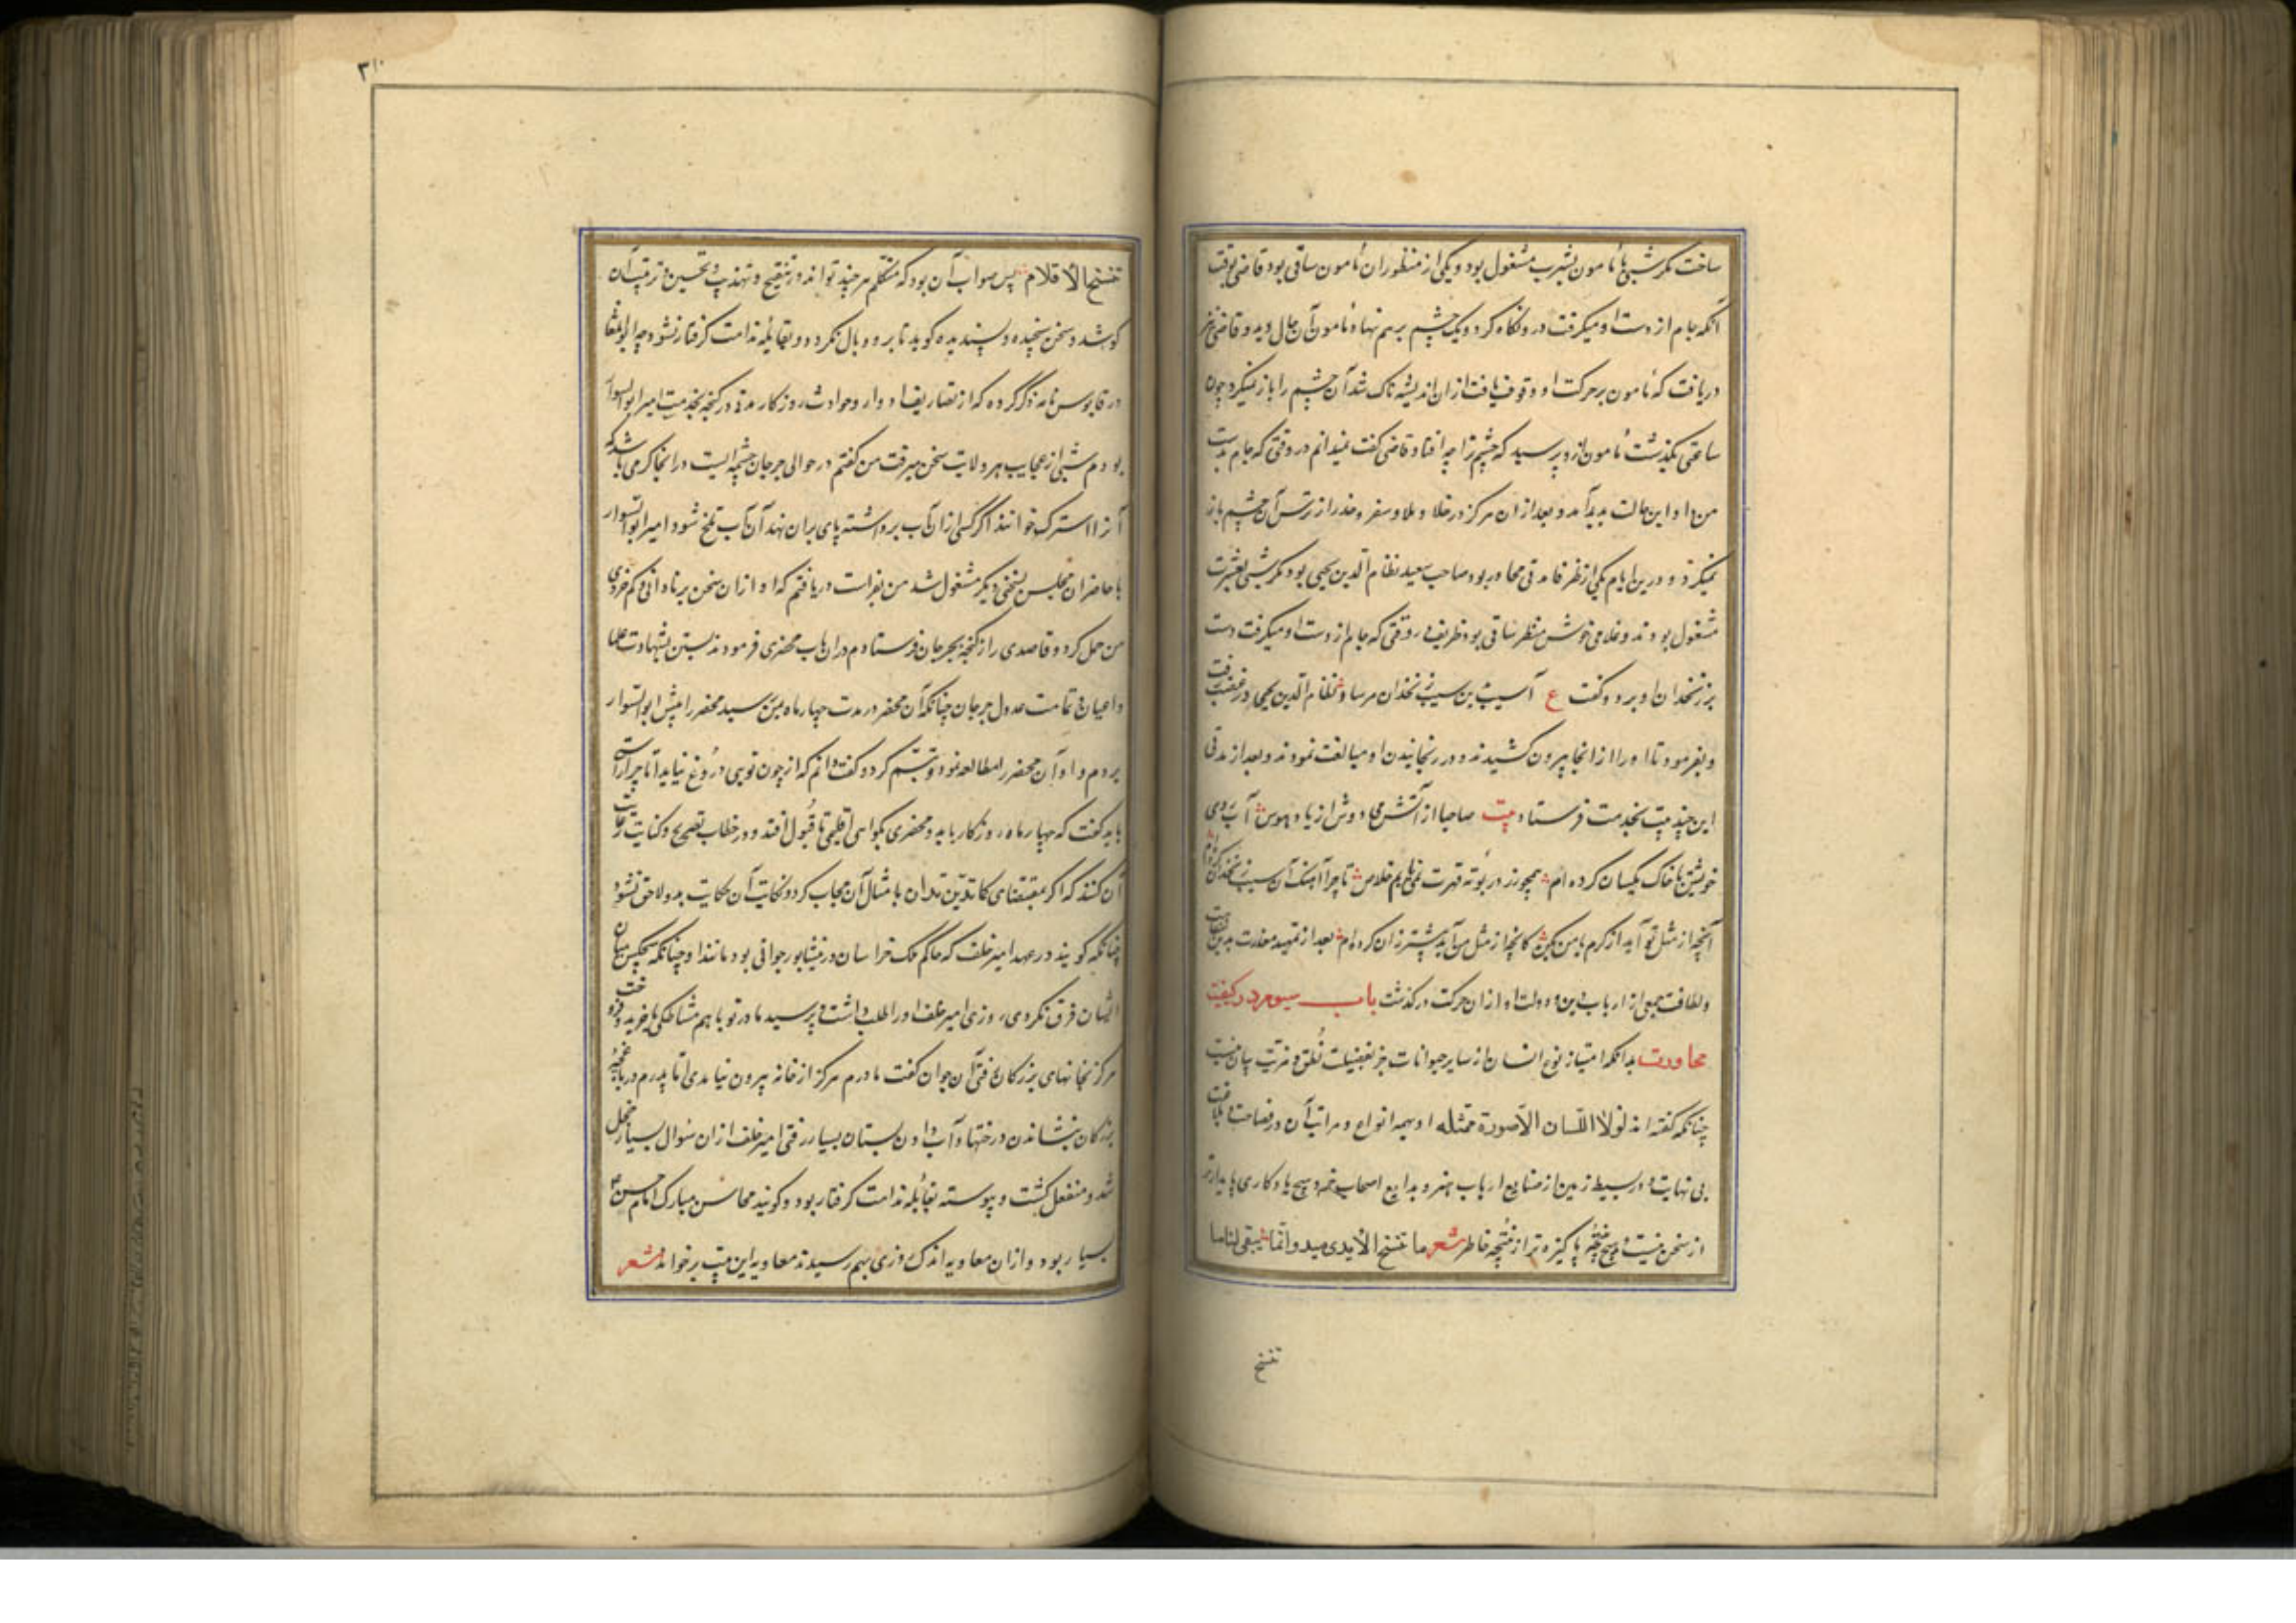 ساخت مکر شبی با مامون بشرب مشغول بود و یکی از منظوران مامون ساقی بود قاضی بوقت
آنکه جام از دست او میکرفت درو نکاه کرد و یک چشم برهم نهاد مامون آن حال دید و قاضی نیز
دریافت که مامون بر حرکت او وقوف یافت ازان اندیشه ناک شد آن چشم را باز نمیکرد چون
ساعتی بکذشت مامون ازو پرسید که چشم ترا چه افتاد قاضی کفت نمیدانم در وقتی که جام بدست
من داد این حالت پدید آمد و بعد ازان هرکز در خلا و ملا و سفر و حضر از ترس آن چشم باز
نمیکرد و درین ایام یکی از ظرفا مدتی مجاور بود صاحب سعید نظام الدین یحیی بود مکر شبی بعشرت
مشغول بودند و غلامی خوش منظر ساقی بود ظریف در وقتی که جام از دست او میکرفت دست
بر زنخدان او برد و کفت ع آسیب بن سیب زنخدان مرساد نظام الدین یحیی در غضب رفت
و بفرمود تا او را از انجا بیرون کشیدند و در رنجانیدن او مبالغت نمودند و بعد از مدتی
این چند بیت بخدمت فرستاد بیت صاحبا از آتش می دوش از باد هوس آب روی
خویشتن با خاک یکسان کرده ام همچو زر در بوته قهرت نمی یابم خلاص تا چرا آهنک آن سیب زنخدان کرده ام
آنچه از مثل تو آید از کرم با من بکن کانچه از مثل من آید بیشتر زان کرده ام بعد از تمهید معذرت بدین
و لطافت جمعی از ارباب دین و دولت او ازان حرکت درکذشت باب سیوم در کیفیت
محاورت بدانکه امتیاز نوع انسان از سایر حیوانات جز بفضیلت نطق و مزیت بیان نیست
چنانکه کفته اند لولا اللسان الا صورة ممثله او بهیمه انواع و مراتب آن در فصاحت و بلاغت
بی نهایت و در بسیط زمین از صنایع ارباب هنر و بدایع اصحاب خرد هیچ یادکاری پایدارتر
از سخن نیست و هیچ تحفه پاکیزه تر از نتیجه خاطر شعر ما تنسخ الایدی یبید و انما یبقی لناما
تنسخ
۳۱۰
تنسخ الاقلام پس صواب آن بود که متکلم هر چند تواند در تنقیح و تهذیب و تحسین و ترتیب آن
کوشد و سخن سنجیده و پسندیده کوید تا برو وبال نکردد و بغایله ندامت کرفتار نشود چه ابوالمعالی
در قابوس نامه ذکر کرده که از تصاریف ادوار و حوادث روزکار مدتی در کنجه بخدمت امیر ابوالسوار
بودم شبی از عجایب هر ولایت سخن میرفت من کفتم در حوالی جرجان چشمه ایست در انجا کرمی باشد که
آنرا استرک خوانند اکر کسی ازان آب برداشته پای بران نهد آن آب تلخ شود امیر ابوالسوار
با حاضران مجلس بسخنی دیکر مشغول شد من بفراست دریافتم که او ازان سخن بر نادانی و کم خردی
من حمل کرد و قاصدی را از کنجه بجرجان فرستادم دران باب محضری فرمودند بستن بشهادت علما
و اعیان و تمامت عدول جرجان چنانکه آن محضر در مدت چهار ماه بمن رسید محضر را پیش ابوالسوار
بردم و او آن محضر را مطالعه نمود و تبسم کرد و کفت دانم که از چون تویی دروغ نیاید اما چرا راستی
باید کفت که چهار ماه روزکار باید و محضری بکواهی اقلیمی تا قبول افتد و در خطاب تصریح و کنایت رعایت
آن کنند که اکر بمقتضای کما تدین تدان بامثال آن مجاب کردد نکایت آن حکایت بدو لاحق نشود
چنانکه کویند در عهد امیر خلف که حاکم ملک خراسان در نیشابور جوانی بود مانند او چنانکه هیچکس میان
ایشان فرق نکردی روزی امیر خلف او را طلب داشت و پرسید مادر تو با هم مشاطکی یا خرید و فروخت
هرکز بخانهای بزرکان رفتی آن جوان کفت مادرم هرکز از خانه بیرون نیامدی اما پدرم در باغچه
بزرکان بنشاندن درختها و آب دادن بستان بسیار رفتی امیر خلف ازان سوال بسیار خجل
شد و منفعل کشت و پیوسته بغایله ندامت کرفتار بود و کویند محاسن مبارک امام حسن
بسیار بود و ازان معاویه اندک روزی بهم رسیدند معاویه این بیت برخواند شعر